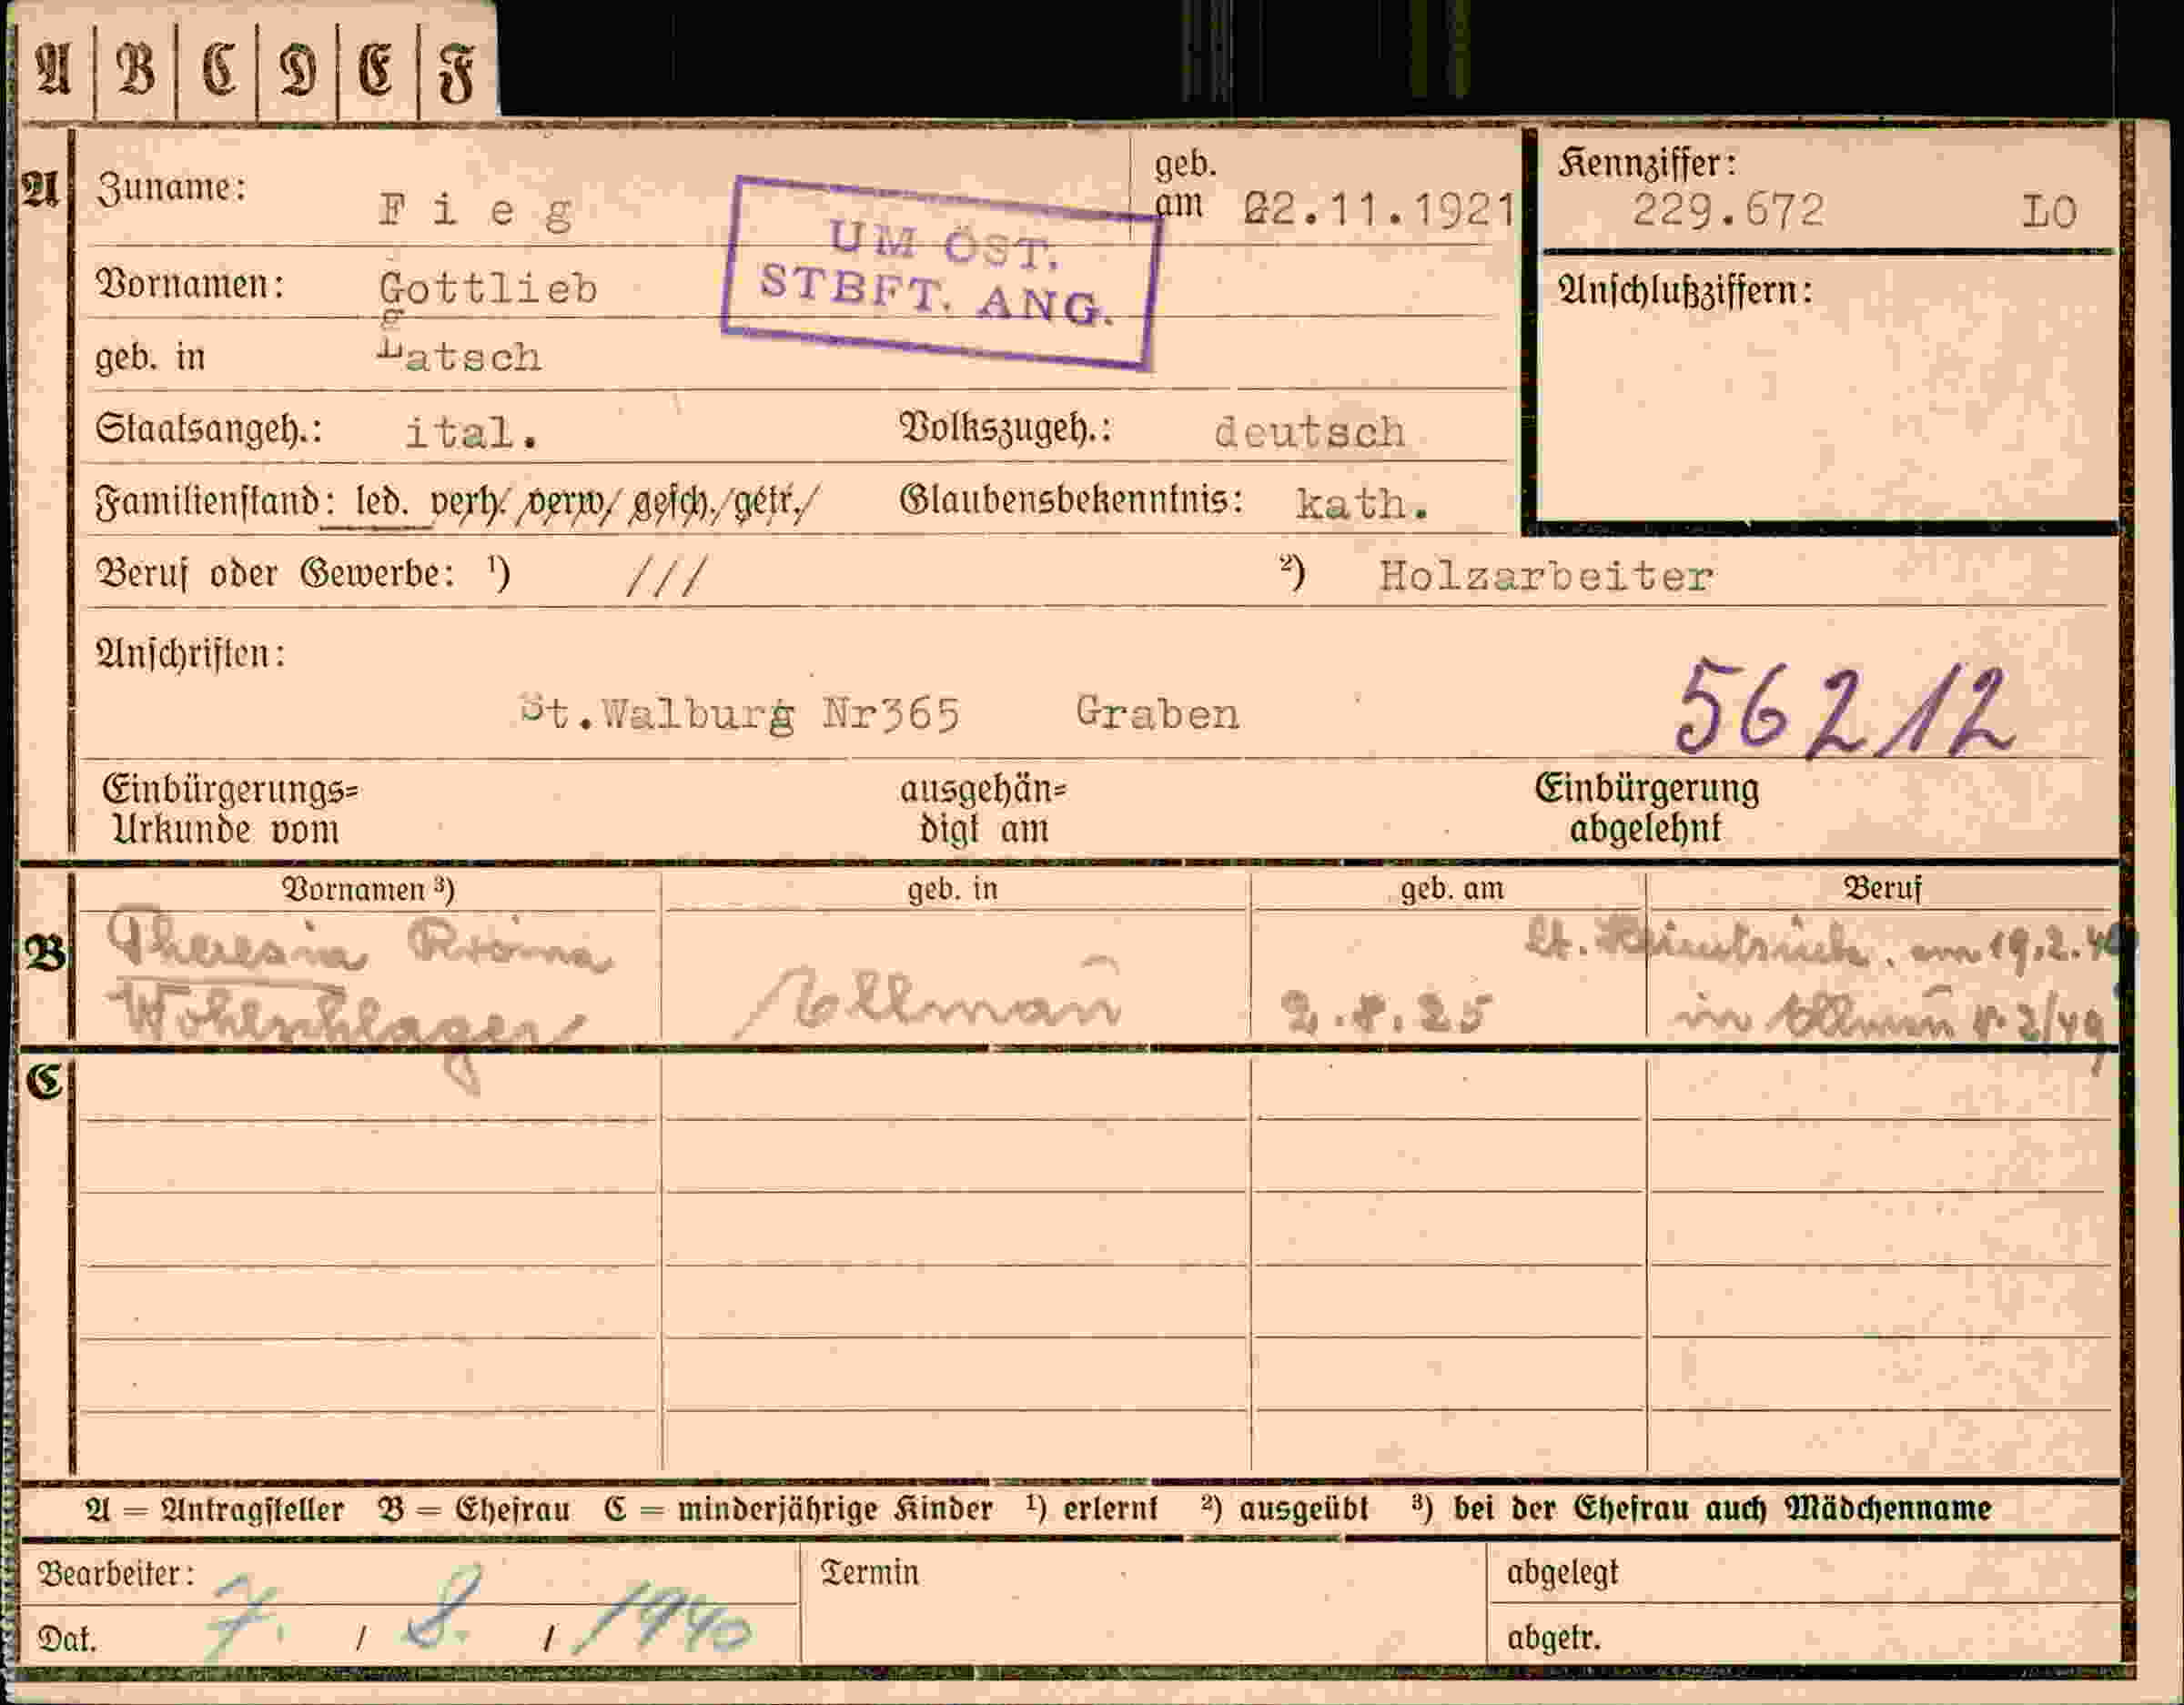 A B C D E F
A Zuname: Fieg geb. am 22.11.1921 Kennziffer: 229.672 LO
UM ÖST.
STBFT. ANG.
Vornamen: Gottlieb Anschlußziffern:
geb. in Latsch
Staatsangeh.: ital. Volkszugeh.: deutsch
Familienstand: led. verh. /verw/ gesch./getr./ Glaubensbekenntnis: kath.
Beruf oder Gewerbe: ¹) /// ²) Holzarbeiter
Anschriften:
St.Walburg Nr365 Graben 56212
Einbürgerungs= ausgehän= Einbürgerung
Urkunde vom digt am abgelehnt
Vornamen ³) geb. in geb. am Beruf
B Theresia
Wohlschlager 2.8.25 in 2/49
lt. am 19.2.
C
A = Antragsteller B = Ehefrau C = minderjährige Kinder ¹) erlernt ²) ausgeübt ³) bei der Ehefrau auch Mädchenname
Bearbeiter: Termin abgelegt
Dat. 7. / 8. / 1940 abgetr.